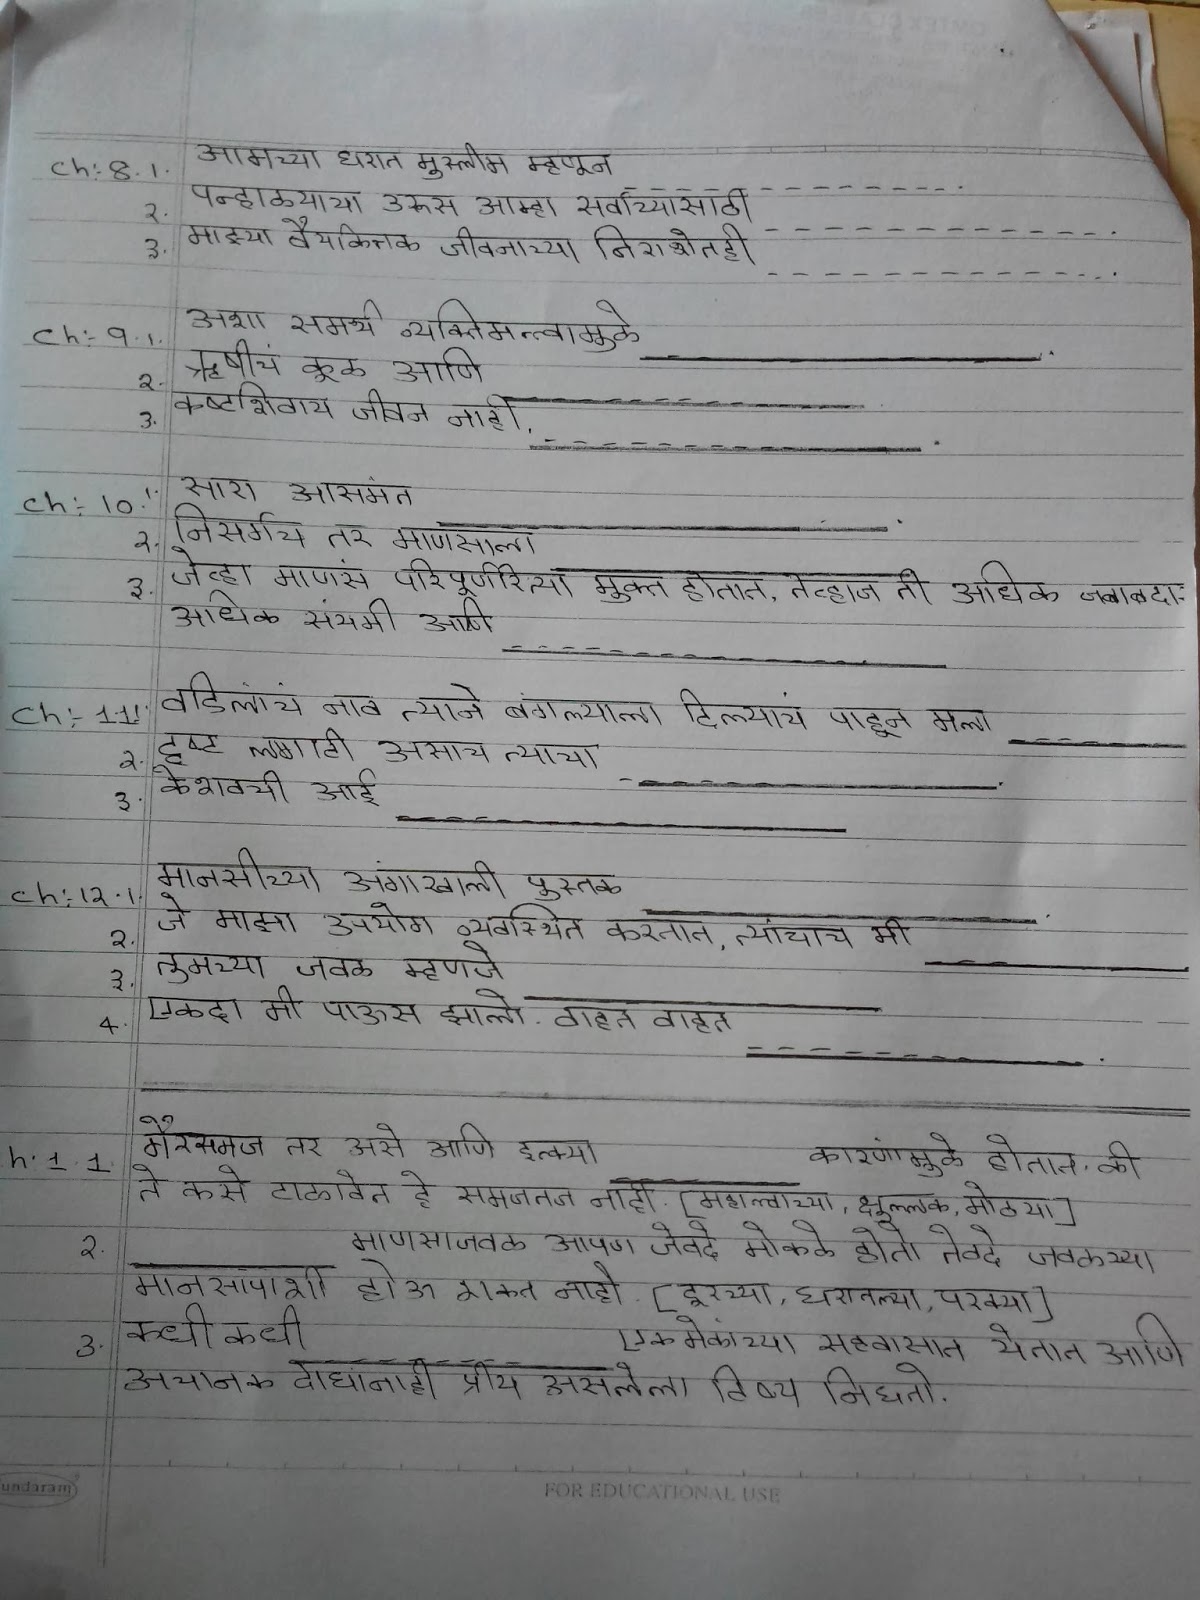 Ch:- 8.1. आमच्या घरात मुस्लीम म्हणून ------------
२. पन्हाळयाचा उरूस आम्हा सर्वांच्यासाठी ------------
३. माझ्या वैयक्तिक जीवनाच्या निराशेतही ------------.
Ch:- 9.1. अशा समर्थ व्यक्तिमत्त्वामुळे ____________.
२. ऋषीचं कूळ आणि ____________.
३. कष्टाशिवाय जीवन नाही, ____________.
Ch:- 10. 1. सारा आसमंत ____________.
२. निसर्गच तर माणसाला ____________
३. जेव्हा माणसं परिपूर्णरित्या मुक्त होतात, तेव्हाज ती अधिक जबाबदा-
अधिक संयमी आणि ____________
Ch:- 11. 1. वडिलांचं नाव त्याने बंगल्याला दिल्याचं पाहून मला ____________
२. दृष्ट लागाटी असाच त्याचा ____________.
३. केशवची आई ____________
Ch:- 12.1. मानसीच्या अंगाखाली पुस्तक ____________.
२. जे माझा उपयोग व्यवस्थित करतात, त्यांचाच मी ____________
३. तुमच्या जवळ म्हणजे ____________
4. एकदा मी पाऊस झालो. वाहत वाहत ____________.
h. 1. 1. गैरसमज तर असे आणि इतक्या ____________ कारणांमुळे होतात. की
ते कसे टाळावेत हे समजतज नाही. [महत्वाच्या, क्षुल्लक, मोठया]
२. ____________ माणसाजवळ आपण जेवढे मोकळे होतो तेवढे जवळच्या
मानसांपाशी होऊ शकत नाही. [दूरच्या, घरातल्या, परक्या]
३. कधी कधी ____________ एकमेकांच्या सहवासात येतात आणि
अचानक दोघांनाही प्रीय असलेला विषय निघतो.
undaram
FOR EDUCATIONAL USE